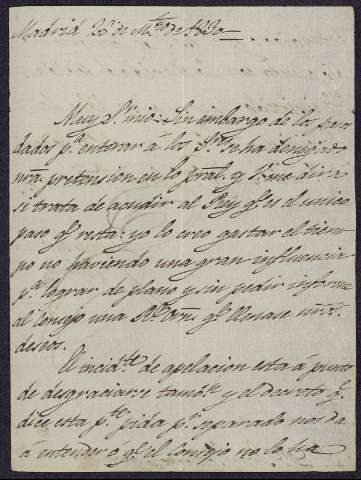 Madrid 28 de Mzo de 1830
Muy Sr. mio: Sin embargo de los pasos
dados pa. enterar á los Sres. se ha denegado
nra. pretension en lo pral. y V. me dira
si trata de acudir al Rey qe. es el unico
paso qe. resta: yo lo creo gastar el tiem-
po no haviendo una gran influencia
pa. lograr de plano y sin pedir informe
al Consejo una Rl. Orn. qe. llenase nros.
deseos.
El incidte. de apelacion está á punto
de desgraciarse tambn. y el decreto qe.
dice esta pte. pida pr. separado nos da
á entender ó qe. el Consejo no lo ha